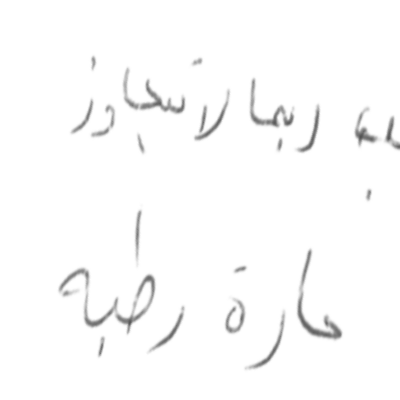 ربما لا تتجاوز
حارة رطبه